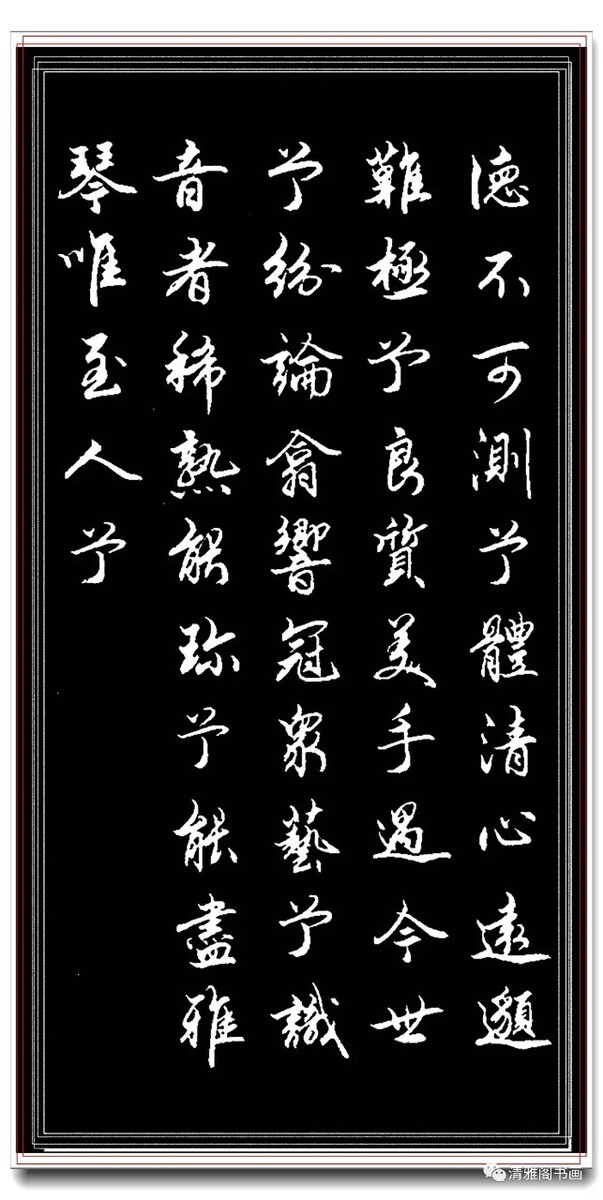 德不可測兮體清心遠邈
難極兮良質美手遇今世
兮紛論翕響冠眾藝兮識
音者稀熟能珎兮能盡雅
琴唯至人兮
清雅阁书画